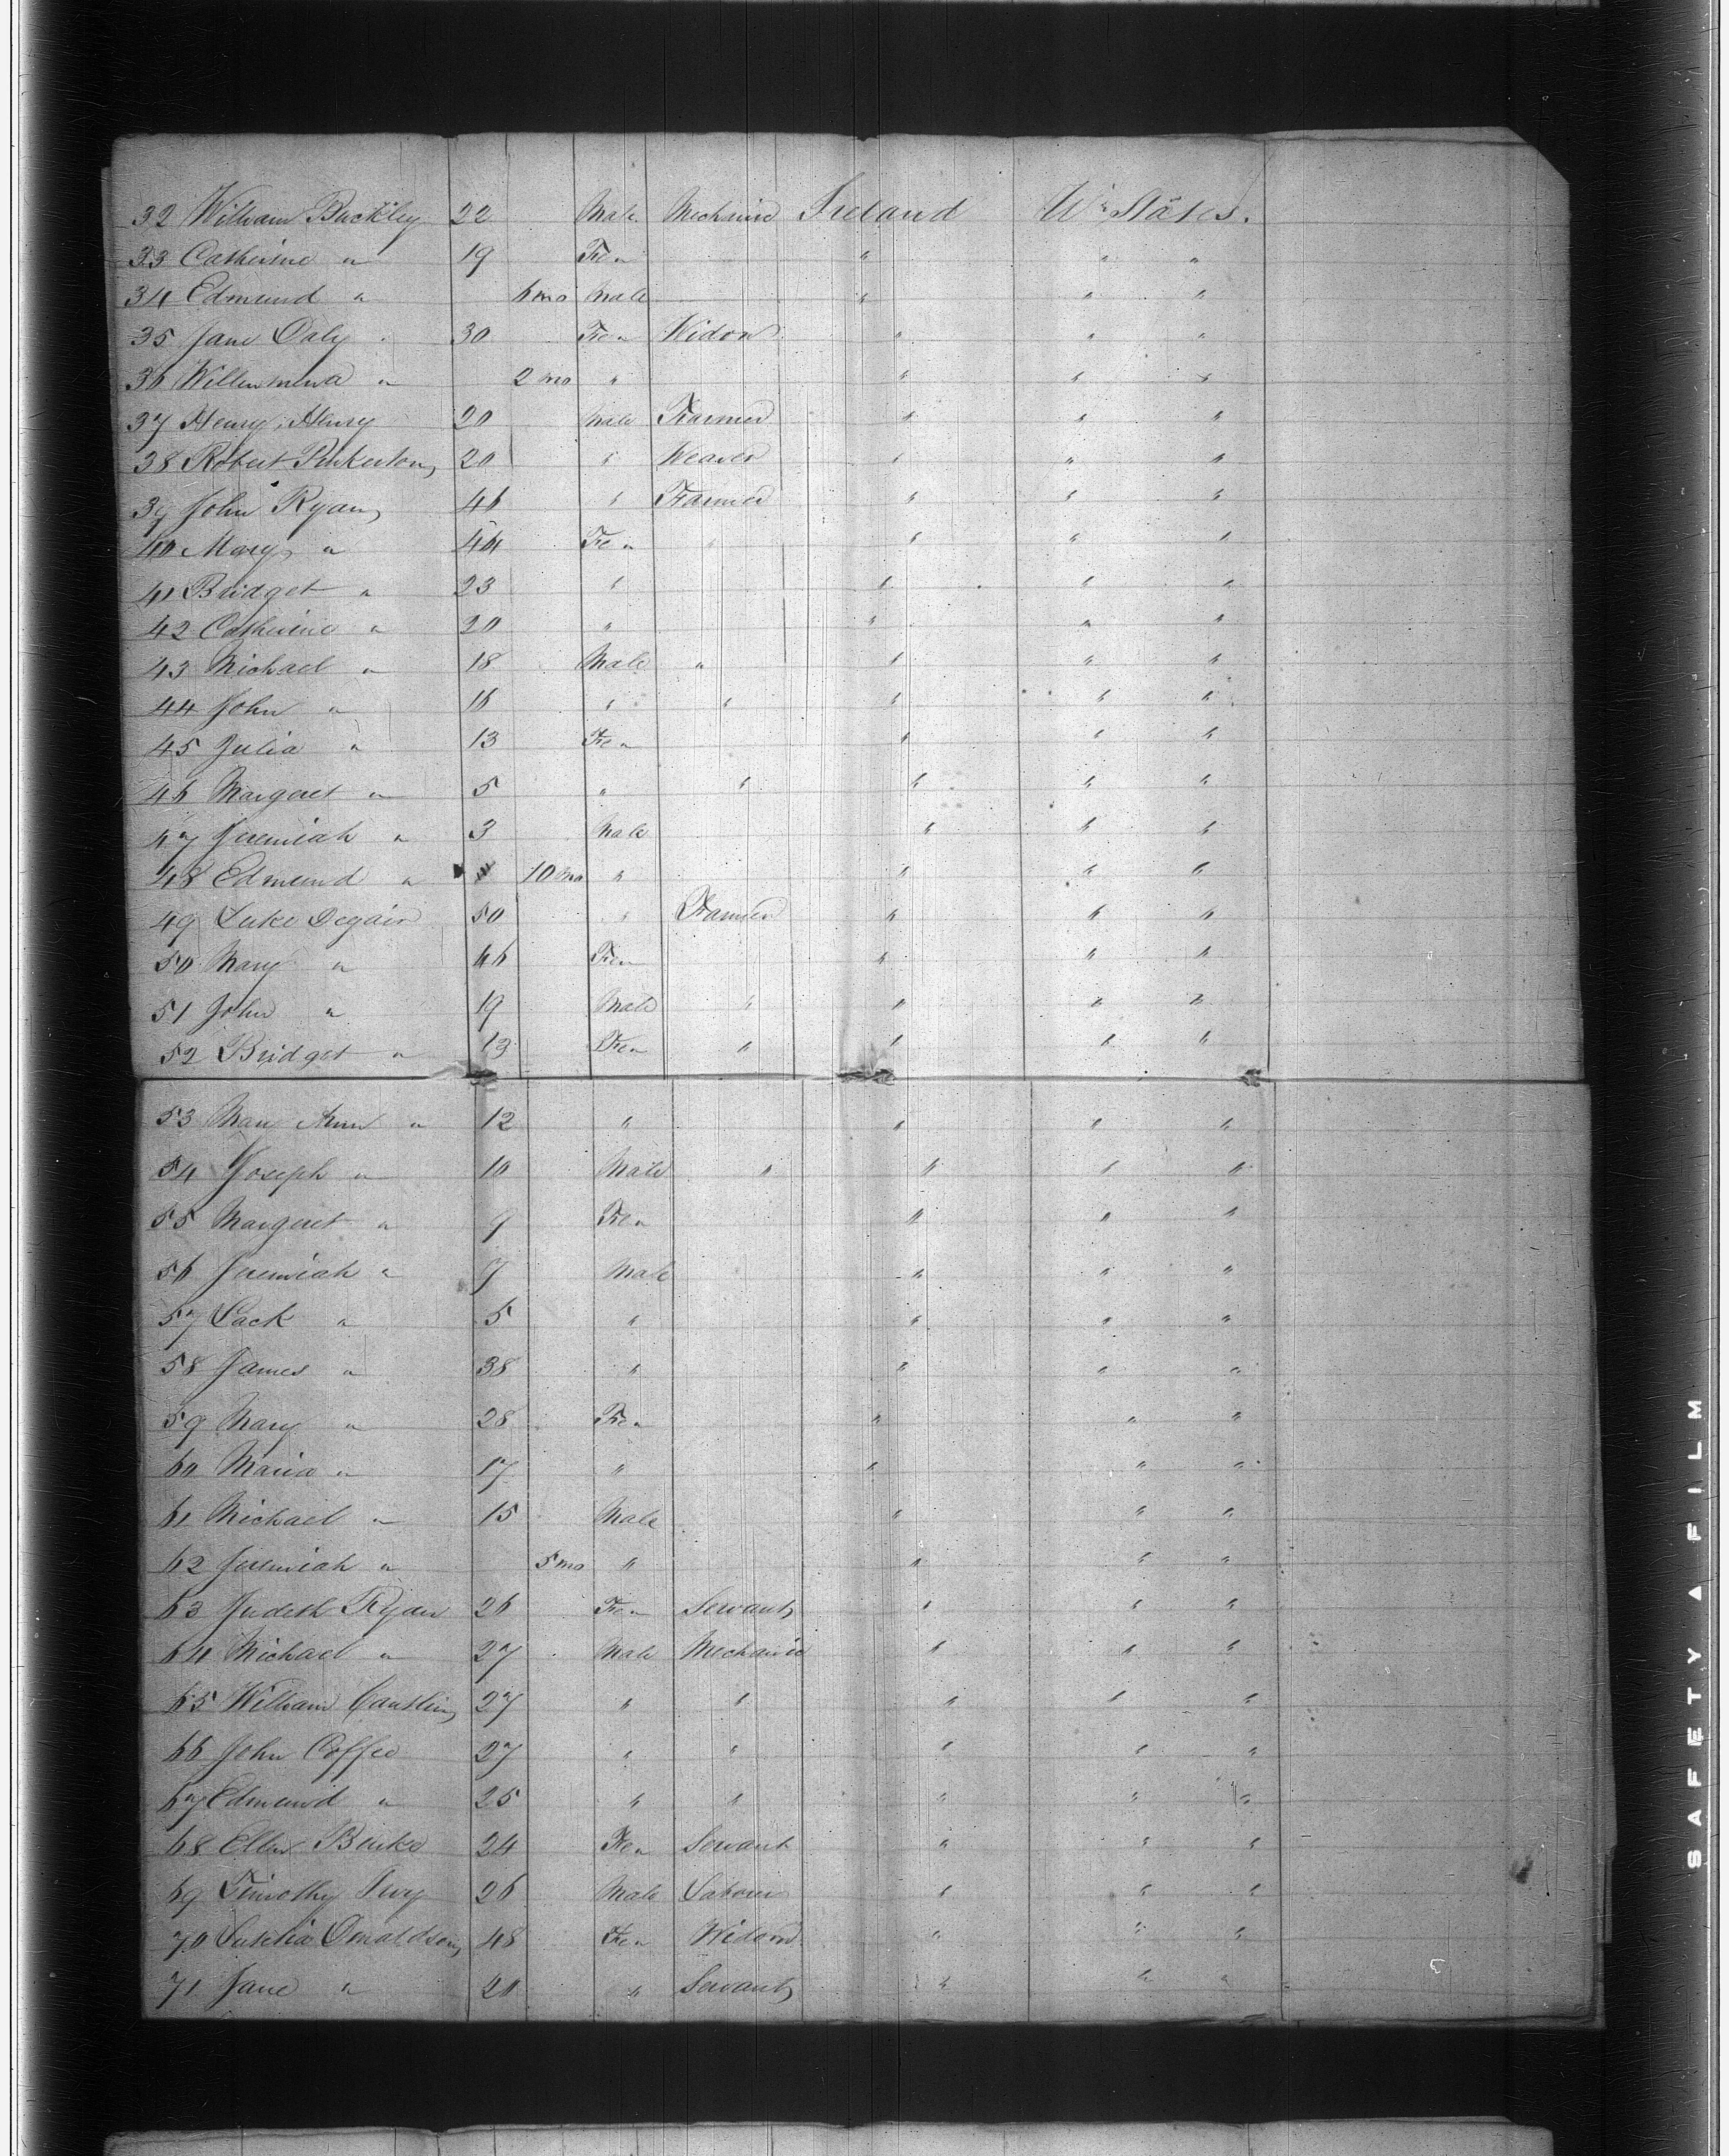 32 William Buckley 22 Male Mechanic Ireland Ud States.
33 Catherine " 19 Fe " " " "
34 Edmund " 6 mo Male " " "
35 Jane Daly 30 Fe " Widow " " "
36 Willenmena " 2 mo " " " "
37 Henry Henry 20 Male Farmer " " "
38 Robert Pinkerton 20 " Weaver " " "
39 John Ryan 46 " Farmer " " "
40 Mary " 44 Fe " " " " "
41 Bridget " 23 " " " "
42 Catherine " 20 " " " "
43 Michael " 18 Male " " " "
44 John " 16 " " " " "
45 Julia " 13 Fe " " " "
46 Margeret " 5 " " " " "
47 Jeremiah " 3 Male " " "
48 Edmund " 10 mo " " " "
49 Luke Degair 50 " Farmer " " "
50 Mary " 46 Fe " " " "
51 John " 19 Male " " " "
52 Bridget " 13 Fe " " " " "
53 Mary Ann " 12 " " " "
54 Joseph " 10 Male " " " "
55 Margeret " 9 Fe " " " "
56 Jeremiah " 7 Male " " "
57 Jack " 5 " " " "
58 James " 38 " " " "
59 Mary " 28 Fe " " " "
60 Maria " 17 " " " "
61 Michael " 15 Male " " "
62 Jeremiah " 5 mo " " " "
63 Judeth Ryan 26 Fe " Servant " " "
64 Michael " 27 Male Mechanic " " "
65 William 27 " " " " "
66 John Coffee 27 " " " " "
67 Edmund " 25 " " " " "
68 Ellen Burke 24 Fe " Servant " " "
69 Timothy 26 Male Labour " " "
70 Donaldson 48 Fe " Widow " " "
71 Jane " 20 " Servant " " "
SAFETY ▲ FILM